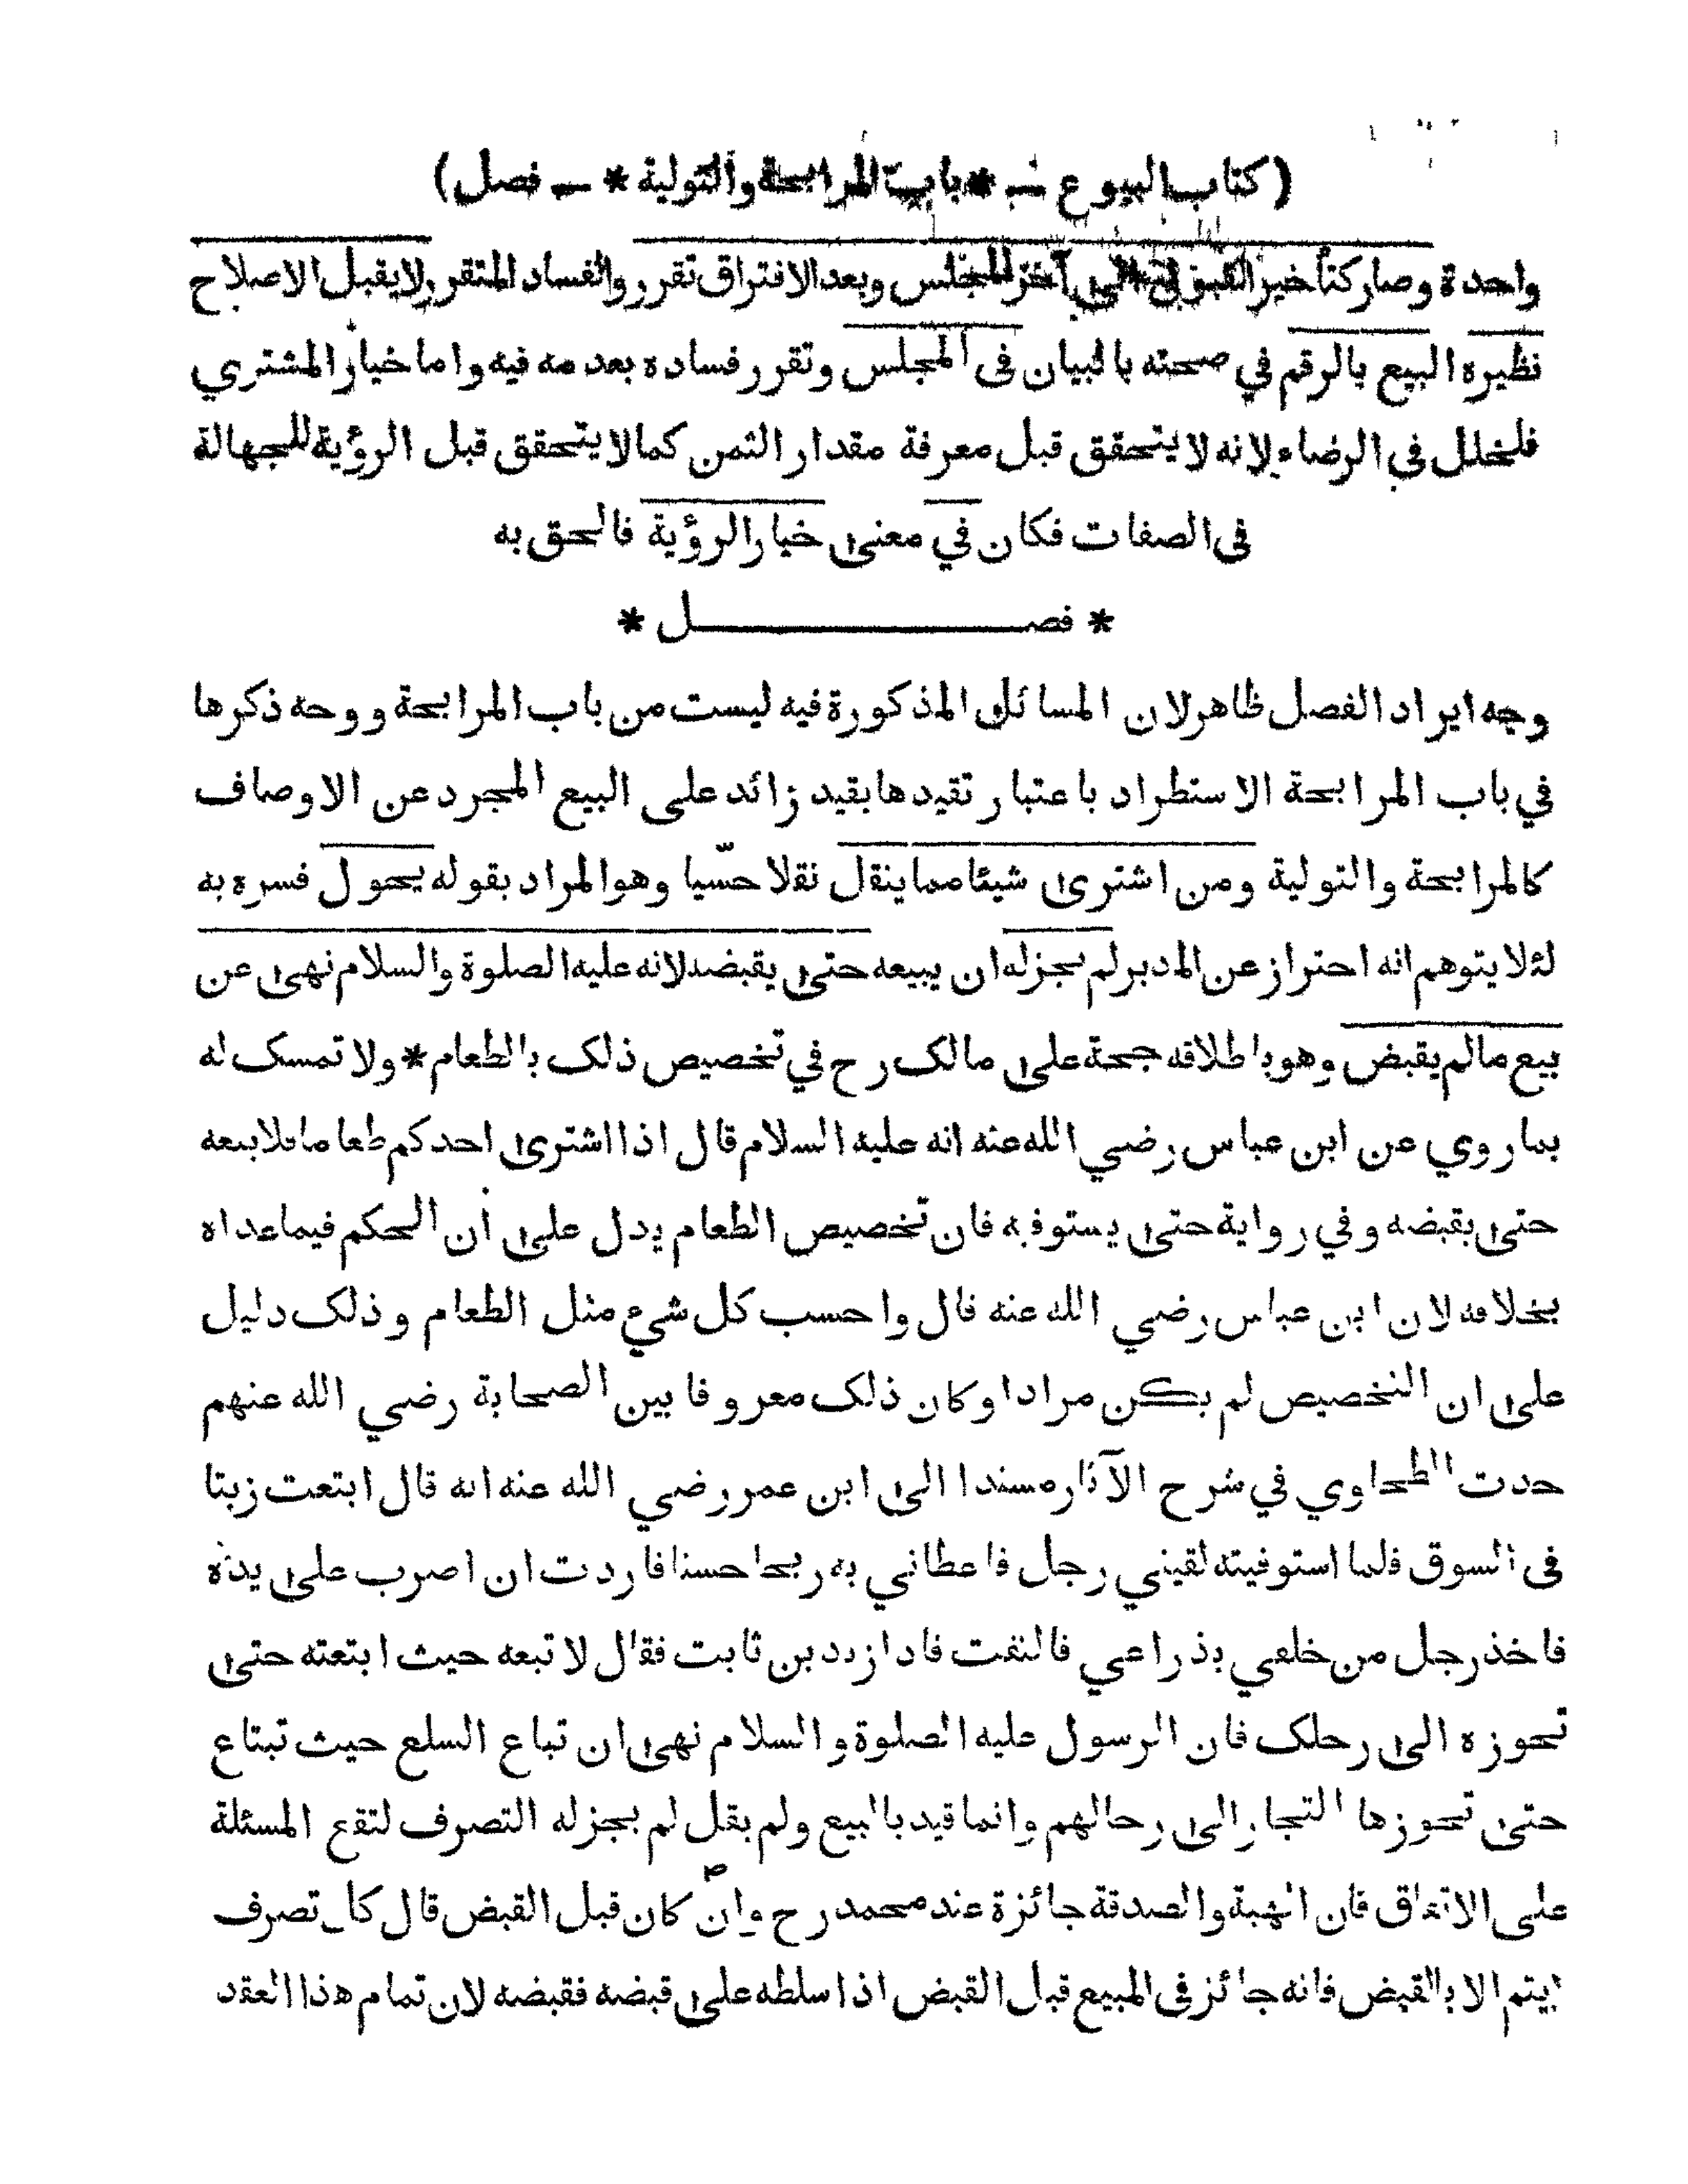 ( كتاب البيوع — * باب المرابحة والتولية * — فصل )
واحدة وصار كتأخير القبول الى آخر المجلس وبعد الافتراق تقرر والفساد المتقرر لا يقبل الاصلاح
نظيره البيع بالرقم في صحته بالبيان فى المجلس وتقرر فساده بعدمه فيه واما خيار المشتري
فلخلل في الرضاء لانه لا يتحقق قبل معرفة مقدار الثمن كما لا يتحقق قبل الرؤية للجهالة
فى الصفات فكان في معنى خيار الرؤية فالحق به
* فصل *
وجه ايراد الفصل ظاهر لان المسائل المذكورة فيه ليست من باب المرابحة ووجه ذكرها
في باب المرابحة الاستطراد باعتبار تقيدها بقيد زائد على البيع المجرد عن الاوصاف
كالمرابحة والتولية ومن اشترى شيئا مما ينقل نقلا حسّيا وهو المراد بقوله يحول فسره به
لئلا يتوهم انه احتراز عن المدبر لم يجزله ان يبيعه حتى يقبضه لانه عليه الصلوة والسلام نهى عن
بيع مالم يقبض وهو باطلاقه حجة على مالك رح في تخصيص ذلك بالطعام * ولا تمسك له
بما روي عن ابن عباس رضي الله عنه انه عليه السلام قال اذا اشترى احدكم طعاما فلا يبعه
حتى يقبضه وفي رواية حتى يستوفيه فان تخصيص الطعام يدل على أن الحكم فيما عداه
بخلافه لان ابن عباس رضي الله عنه قال واحسب كل شيء مثل الطعام وذلك دليل
على ان التخصيص لم يكن مرادا وكان ذلك معروفا بين الصحابة رضي الله عنهم
حدث الطحاوي في شرح الآثار مسندا الى ابن عمر رضي الله عنه انه قال ابتعت زيتا
فى السوق فلما استوفيته لقيني رجل فاعطاني به ربحا حسنا فاردت ان اضرب على يده
فاخذ رجل من خلفي بذراعي فالتفت فاذا زيد بن ثابت فقال لا تبعه حيث ابتعته حتى
تحوزه الى رحلك فان الرسول عليه الصلوة والسلام نهى ان تباع السلع حيث تبتاع
حتى تحوزها التجار الى رحالهم وانما قيد بالبيع ولم يقل لم يجزله التصرف لتقع المسئلة
على الاتفاق فان الهبة والصدقة جائزة عند محمد رح وان كان قبل القبض قال كل تصرف
لايتم الا بالقبض فانه جائز فى المبيع قبل القبض اذا سلطه على قبضه فقبضه لان تمام هذا العقد